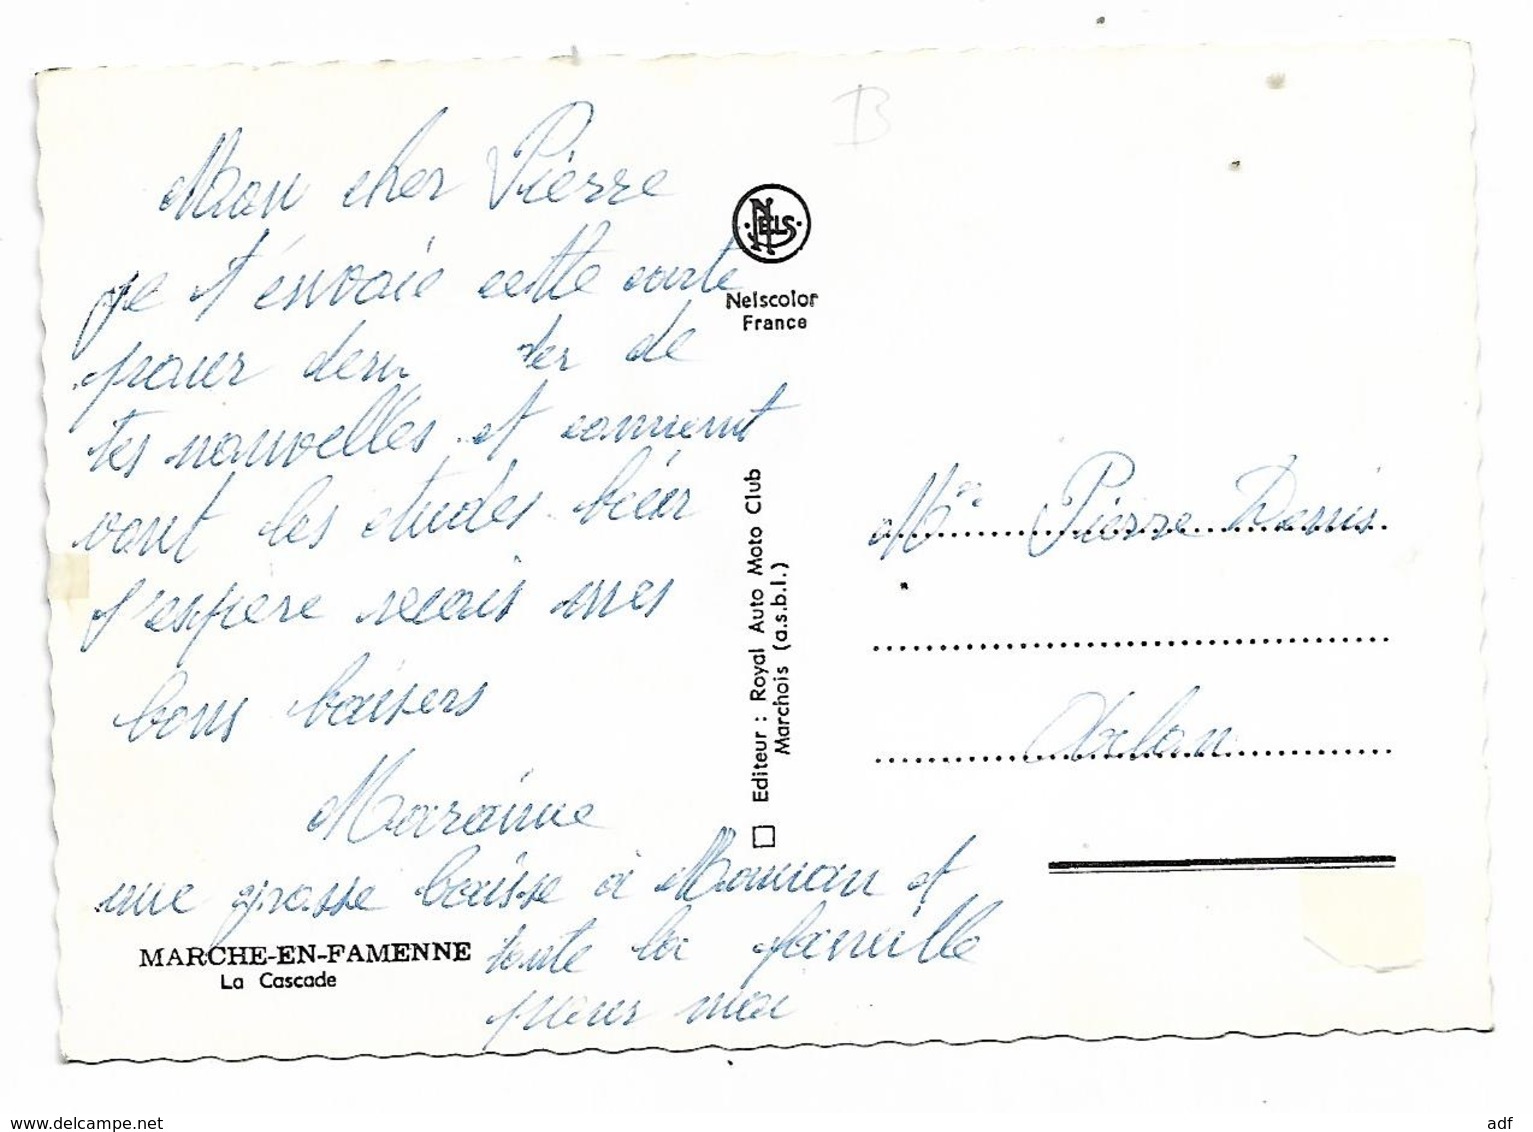 B
Mon cher Pierre
je t'envoie cette carte
pour dem der de
tes nouvelles et comment
vont les études bien
j'espère recois mes
bons baisers
Marainne
une grosse baisse a Maman et
toute la famille
pour moi
MARCHE-EN-FAMENNE
La Cascade
NELS
Nelscolor
France
Editeur : Royal Auto Moto Club
Marchois (a.s.b.l.)
Pierre Denis
www.delcampe.net
adf